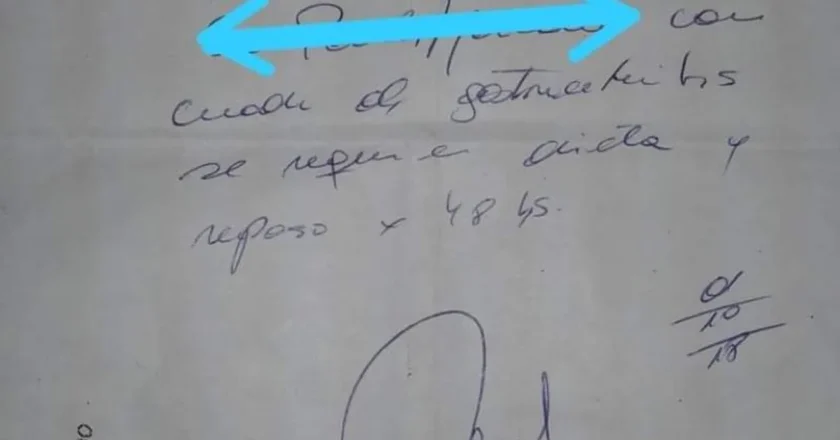 con
cuadro de gastroenteritis
se requiere dieta y
reposo x 48 hs.
10
18